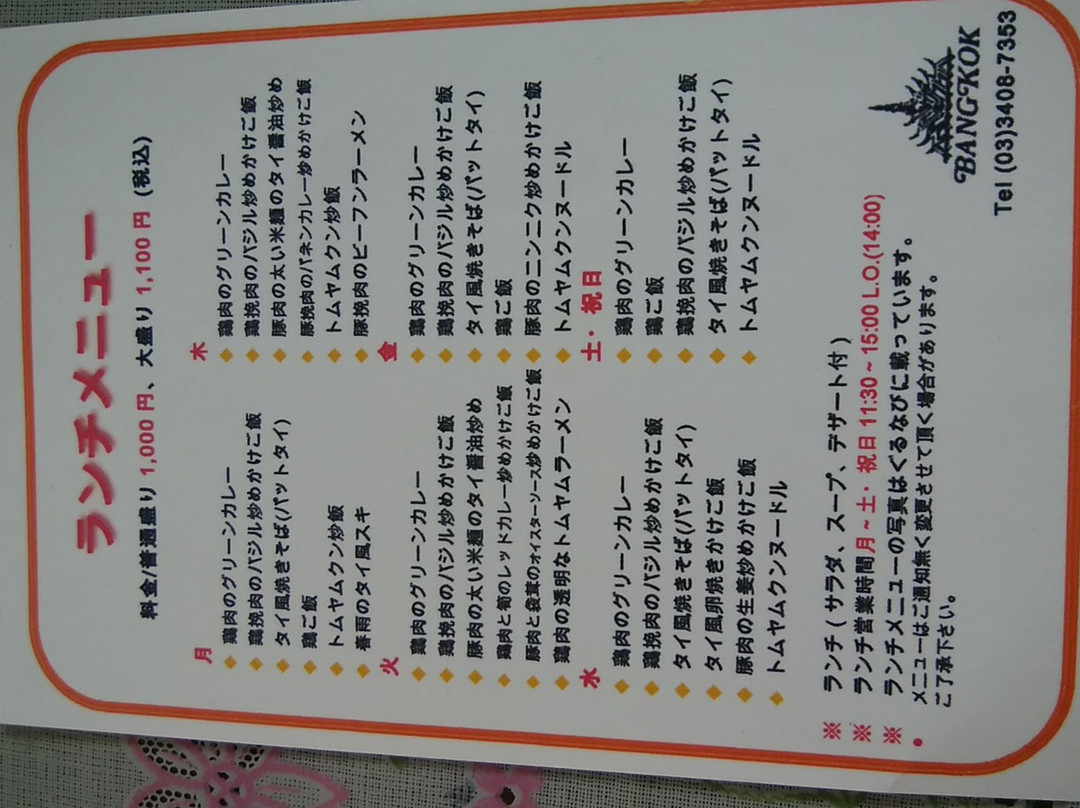 ランチメニュー
料金/普通盛り 1,000 円、大盛り 1,100 円 (税込)
月
◆ 鶏肉のグリーンカレー
◆ 鶏挽肉のバジル炒めかけご飯
◆ タイ風焼きそば(パットタイ)
◆ 鶏ご飯
◆ トムヤムクン炒飯
◆ 春雨のタイ風スキ
火
◆ 鶏肉のグリーンカレー
◆ 鶏挽肉のバジル炒めかけご飯
◆ 豚肉の太い米麺のタイ醤油炒め
◆ 鶏肉と筍のレッドカレー炒めかけご飯
◆ 豚肉と袋茸のオイスターソース炒めかけご飯
◆ 鶏肉の透明なトムヤムラーメン
水
◆ 鶏肉のグリーンカレー
◆ 鶏挽肉のバジル炒めかけご飯
◆ タイ風焼きそば(パットタイ)
◆ タイ風卵焼きかけご飯
◆ 豚肉の生姜炒めかけご飯
◆ トムヤムクンヌードル
木
◆ 鶏肉のグリーンカレー
◆ 鶏挽肉のバジル炒めかけご飯
◆ 豚肉の太い米麺のタイ醤油炒め
◆ 豚挽肉のパネンカレー炒めかけご飯
◆ トムヤムクン炒飯
◆ 豚挽肉のビーフンラーメン
金
◆ 鶏肉のグリーンカレー
◆ 鶏挽肉のバジル炒めかけご飯
◆ タイ風焼きそば(パットタイ)
◆ 鶏ご飯
◆ 豚肉のニンニク炒めかけご飯
◆ トムヤムクンヌードル
土・祝日
◆ 鶏肉のグリーンカレー
◆ 鶏ご飯
◆ 鶏挽肉のバジル炒めかけご飯
◆ タイ風焼きそば(パットタイ)
◆ トムヤムクンヌードル
※ ランチ ( サラダ、スープ、デザート付 )
※ ランチ営業時間 月～土・祝日 11:30～15:00 L.O.(14:00)
※ ランチメニューの写真はぐるなびに載っています。
● メニューはご通知無く変更させて頂く場合があります。
ご了承下さい。
BANGKOK
Tel (03)3408-7353